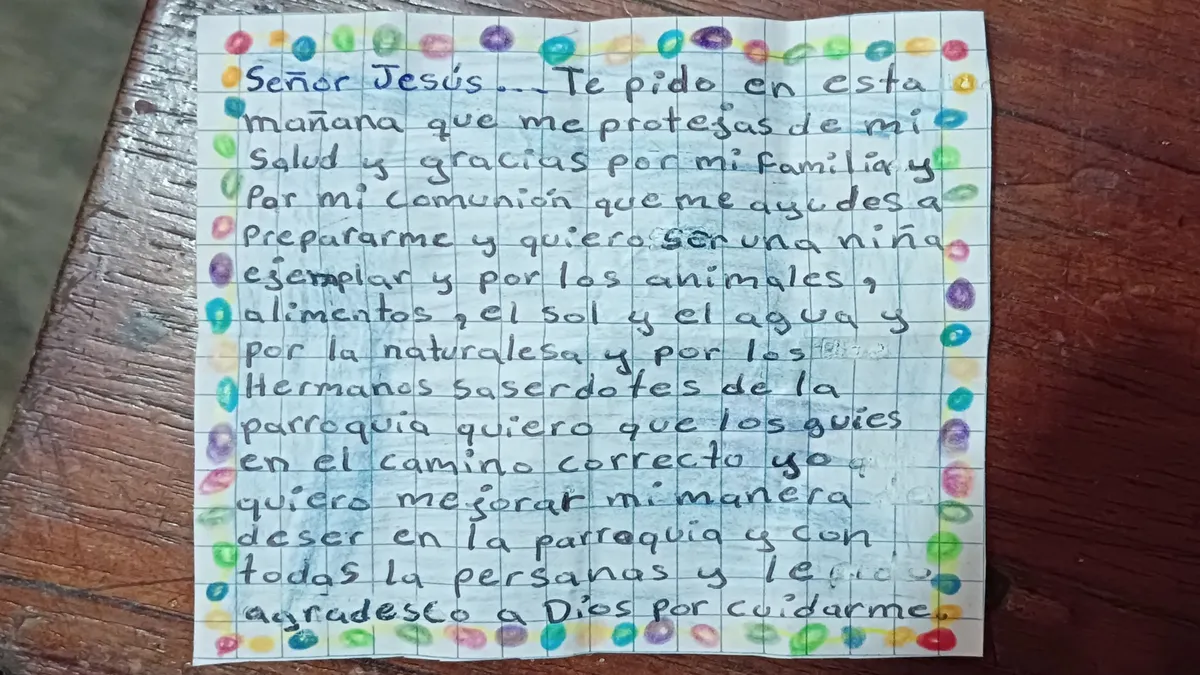 Señor Jesús.... Te pido en esta
mañana que me protejas de mi
Salud y gracias por mi familia y
Por mi comunión que me ayudes a
prepararme y quiero ser una niña
ejemplar y por los animales,
alimentos, el sol y el agua y
por la naturalesa y por los
Hermanos saserdotes de la
parroquia quiero que los guies
en el camino correcto yo
quiero mejorar mi manera
deser en la parroquia y con
todas la personas y le
agradesco a Dios por cuidarme.